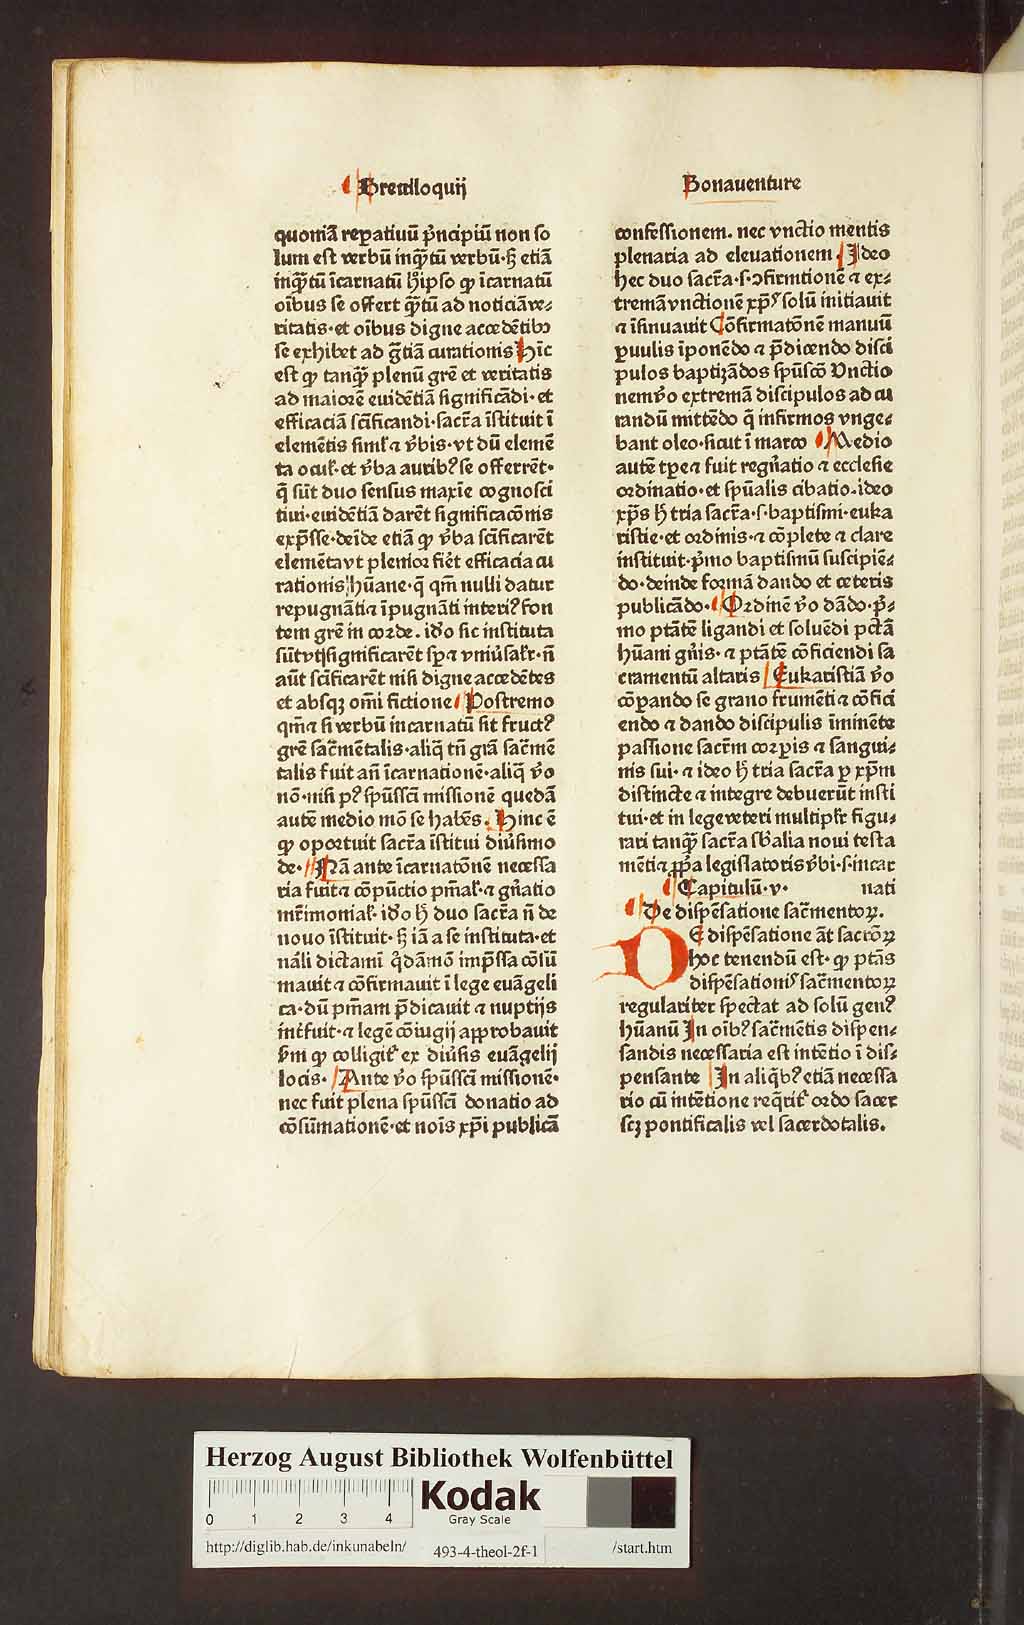 Breuiloquij
Bonauenture
quoniā reꝑatiuū pͥncipiū non so
lum est verbū inqͣtū verbū·ꝫ etiā
inqͣtū īcarnatū hͥ ipso ꝙ īcarnatū
oībus se offert qͣtū ad noticiā ve⸗
ritatis·et oībus digne accedētibꝫ
se exhibet ad gr̄tiā curationis Hīc
est ꝙ tanqͣꝫ plenū grē et veritatis
ad maiorē euidētiā significādi·et
efficaciā scīficandi·sacr̄a īstituit ī
elemētis siml̓ ⁊ v̓bis·vt dū elemē
ta ocul̓·et v̓ba auribꝰ se offerrēt·
q̄ sūt duo sensus maxīe cognosci
tiui·euidētiā darēt significacōnis
exp̄sse·deīde etiā ꝙ v̓ba scīficarēt
elemēta vt plenior fiēt efficacia cu
rationis hūane·q̄ qm̄ nulli datur
repugnāti ⁊ īpugnāti interiꝰ fon
tem grē in corde. idʼo sic instituta
sūt vt significarēt sꝑ ⁊ vniu̓salʼr·n̄
aūt scīficarēt nisi digne accedētes
et absqꝫ om̄i fictione Postremo
qm̄ ⁊ si verbū incarnatū sit fructꝰ
grē sac̄mētalis·aliq̄ tn̄ gr̄a sac̄mē
talis fuit an̄ īcarnationē·aliq̄ v̓o
nō·nisi pꝰ spūssci missionē quedā
autē medio mō se habēs. Hinc ē
ꝙ oportuit sacr̄a īstitui diu̓simo
de· Nā ante īcarnatōnē necessa
ria fuit ⁊ cōpūctio pn̄ial̓·⁊ gn̄atio
mr̄imonial̓·idʼo hͨ duo sacr̄a n̄ de
nouo īstituit·ꝫ iā a se instituta·et
nāli dictamī qͦdāmō imp̄ssa cōsū
mauit ⁊ cōfirmauit ī lege euāgeli
ca·dū pn̄iam p̄dicauit ⁊ nuptijs
int̓fuit·⁊ legē cōiugij approbauit
ẜm ꝙ colligit̓ ex diu̓sis euāgelij
locis· Ante v̓o spūssci missionē·
nec fuit plena spūssci donatio ad
cōsūmationē·et noīs xp̄i publicā
confessionem. nec vnctio mentis
plenaria ad eleuationem Ideo
hec duo sacr̄a·s·ↄfirmationē ⁊ ex⸗
tremā vnctionē xp̄ꝰ solū initiauit
⁊ īsinuauit Cōfirmatōnē manuū
ꝑuulis īponēdo ⁊ p̄dicendo disci
pulos baptizādos spūscō Vnctio
nem v̓o extremā discipulos ad cu
randū mittēdo q̄ infirmos vnge⸗
bant oleo·sicut ī marco Medio
autē tꝑe ⁊ fuit regn̄atio ⁊ ecclesie
ordinatio·et spūalis cibatio·ideo
xp̄s hͨ tria sacr̄a·s·baptismi·euka
ristie·et ordinis·⁊ cōplete ⁊ clare
instituit·pͥmo baptismū suscipiē⸗
do·deinde formā dando et ceteris
publicādo· Ordinē v̓o dādo·pͥ⸗
mo ptātē ligandi et soluēdi pctā
hūani gn̄is·⁊ ptātē cōficiendi sa
cramentū altaris Eukaristiā v̓o
cōꝑando se grano frumēti ⁊ cōfici
endo ⁊ dando discipulis īminēte
passione sacrm̄ corꝑis ⁊ sangui⸗
nis sui·⁊ ideo hͨ tria sacr̄a ꝑ xp̄m
distincte ⁊ integre debuerūt insti
tui·et in lege veteri multiplʼr figu⸗
rari tanqͣꝫ sacr̄a sb̓alia noui testa
mēti ⁊ ꝓpͥa legislatoris v̓bi·s·incar
Capitulū·v· nati
De dispēsatione sac̄mentoꝝ.
DE dispēsatione āt sacrōꝝ
hoc tenendū est·ꝙ ptās
dispēsationis sac̄mentoꝝ
regulariter spectat ad solū genꝰ
hūanū In oībꝰ sac̄mētis dispen⸗
sandis necessaria est intētio ī dis⸗
pensante In aliq̄bꝰ etiā necessa
rio cū intētione reqͥrit̓ ordo sacer
scꝫ pontificalis vel sacerdotalis.
Herzog August Bibliothek Wolfenbüttel
0 1 2 3 4
Kodak
Gray Scale
http://diglib.hab.de/inkunabeln/ 493-4-theol-2f-1 /start.htm